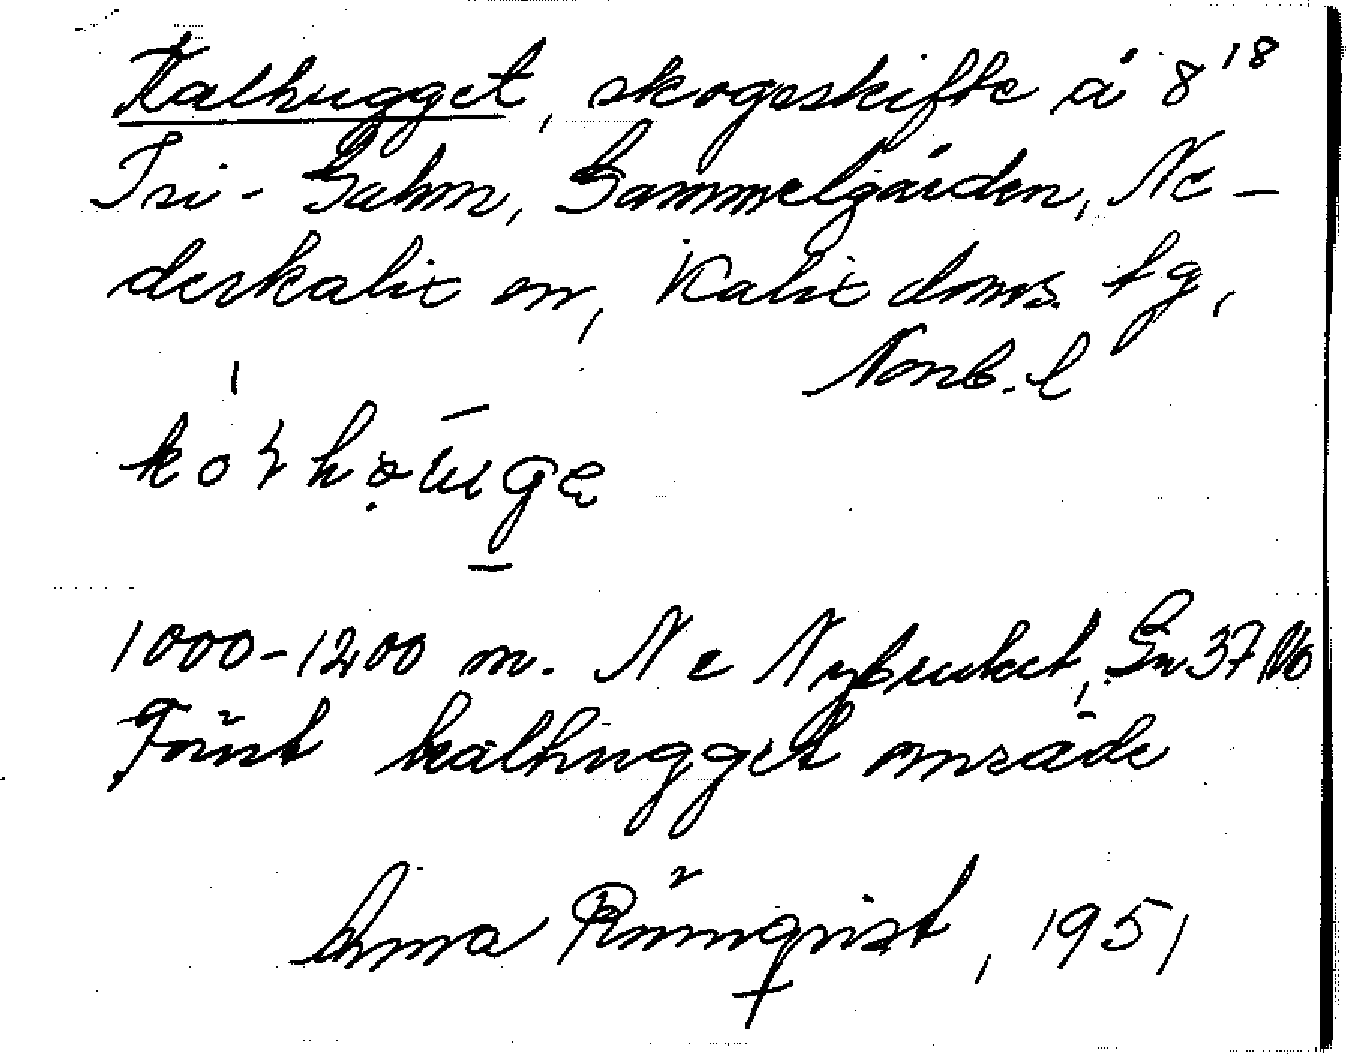 Kalhugget, skogsskifte å 8¹⁸
Tri-Holm, Gammelgården, Ne-
derkalix sn, Kalix doms. tg,
Norrb. l
1000-1200 m. N e Nybruket,
Förut kalhugget område
Anna Rönnqvist, 1951